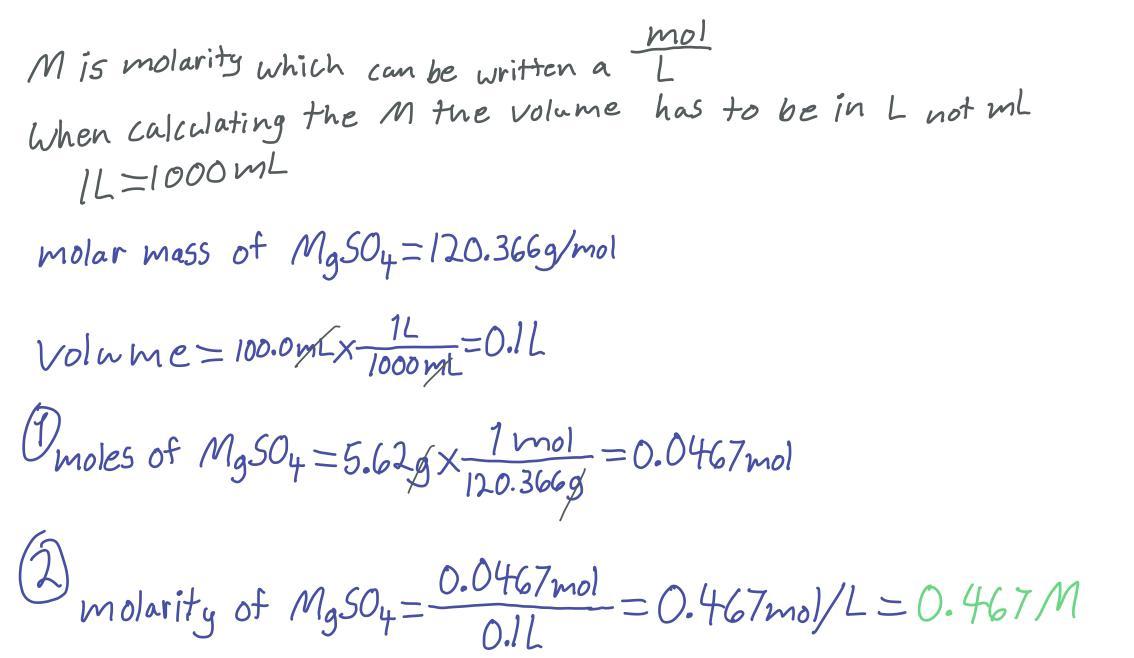 M is molarity which can be written a mol/L
When calculating the M the volume has to be in L not mL
1L=1000mL
molar mass of MgSO₄=120.366g/mol
Volume=100.0mL×1L/1000mL=0.1L
① moles of MgSO₄=5.62g×1mol/120.366g=0.0467mol
② molarity of MgSO₄=0.0467mol/0.1L=0.467mol/L=0.467M